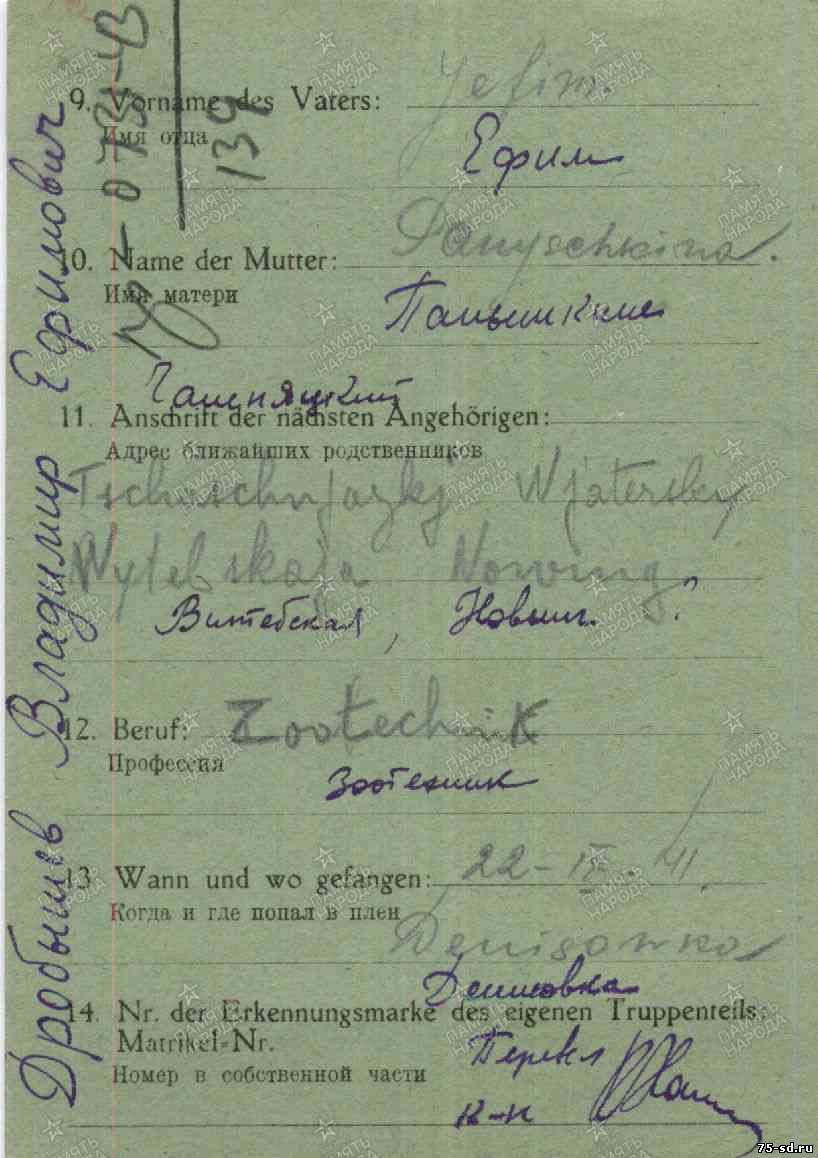 Дробышев Владимир Ефимович
0785-43
139
9. Vorname des Vaters: Jefim
Имя отца
Ефим
10. Name der Mutter: Panyschkina.
Имя матери
Панышкина
Чашняцкий
11. Anschrift der nächsten Angehörigen:
Адрес ближайших родственников
Tschaschnjazkj
Wytebskaja Nowing
Витебская, Новынг. ?
12. Beruf: Zootechnik
Профессия
Зоотехник
13 Wann und wo gefangen: 22-IX-41.
Когда и где попал в плен
Denisowka
Денисовка
14. Nr. der Erkennungsmarke des eigenen Truppenteils:
Matrikel-Nr.
Номер в собственной части
Перевел
к-н
ПАМЯТЬ НАРОДА
75-sd.ru